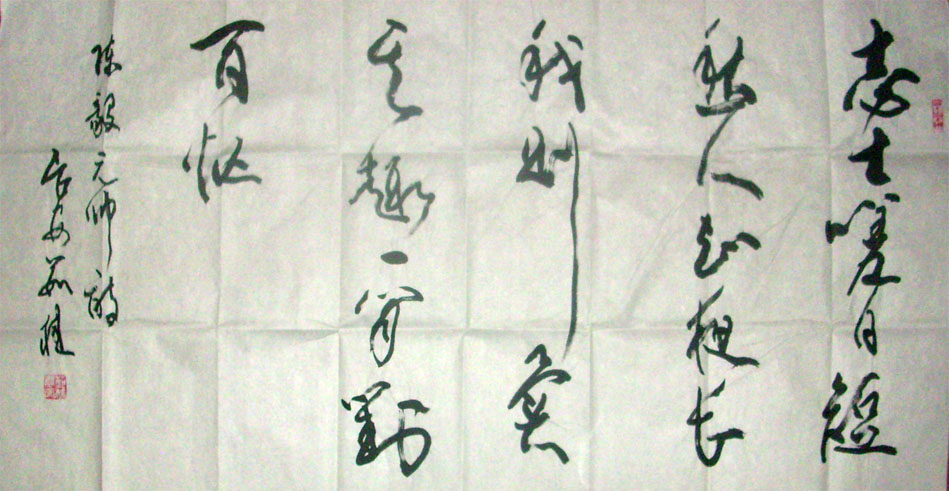 志士嗟日短
愁人知夜长
我则异
其趣一闲對
百忙
陈毅元帅诗